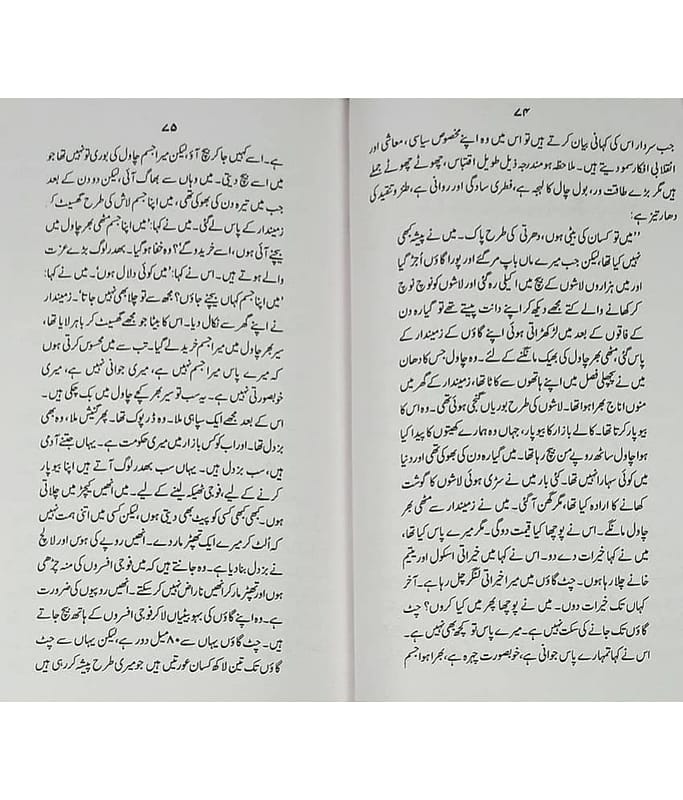 ۷۴
جب سردار اس کی کہانی بیان کرتے ہیں تو اس میں وہ اپنے مخصوص سیاسی، معاشی اور
انقلابی افکار سمو دیتے ہیں۔ ملاحظہ ہو مندرجہ ذیل طویل اقتباس، چھوٹے چھوٹے جملے
ہیں مگر بڑے طاقت ور، بول چال کا لہجہ ہے، فطری سادگی اور روانی ہے، طنز و تنقید کی
دھار تیز ہے:
"میں تو کسان کی بیٹی ہوں، دھرتی کی طرح پاک۔ میں نے پیشہ کبھی
نہیں کیا تھا، لیکن جب میرے ماں باپ مر گئے اور پورا گاؤں اُجڑ گیا
اور میں ہزاروں لاشوں کے بیچ میں اکیلی رہ گئی اور لاشوں کو نوچ نوچ
کر کھانے والے کتے مجھے دیکھ کر اپنے دانت پیستے تھے تو گیارہ دن
کے فاقوں کے بعد میں لڑکھڑاتی ہوئی اپنے گاؤں کے زمیندار کے
پاس گئی، مٹھی بھر چاول کی بھیک مانگنے کے لئے۔ وہ چاول جس کا دھان
میں نے پچھلی فصل میں اپنے ہاتھوں سے کاٹا تھا، زمیندار کے گھر میں
منوں اناج بھرا ہوا تھا۔ لاشوں کی طرح بوریاں گنجی ہوئی تھی۔ وہ اس کا
بیوپار کرتا تھا۔ کالے بازار کا بیوپار، جہاں وہ ہمارے کھیتوں کا پیدا کیا
ہوا چاول ساٹھ روپے من بیچ رہا تھا۔ میں گیارہ دن کی بھوکی تھی اور دنیا
میں کوئی سہارا نہیں تھا۔ کئی بار میں نے سڑی ہوئی لاشوں کا گوشت
کھانے کا ارادہ کیا تھا، مگر گھن آ گئی۔ میں نے زمیندار سے مٹھی بھر
چاول مانگے۔ اس نے پوچھا کیا قیمت دو گی۔ مگر میرے پاس کیا تھا،
میں نے کہا خیرات دے دو۔ اس نے کہا میں خیراتی اسکول اور یتیم
خانے چلا رہا ہوں۔ چٹ گاؤں میں میرا خیراتی لنگر چل رہا ہے۔ آخر
کہاں تک خیرات دوں۔ میں نے پوچھا پھر میں کیا کروں؟ چٹ
گاؤں تک جانے کی سکت نہیں ہے۔ میرے پاس تو کچھ بھی نہیں ہے۔
اس نے کہا تمہارے پاس جوانی ہے، خوبصورت چہرہ ہے، بھرا ہوا جسم
۷۵
ہے۔ اسے کہیں جا کر بیچ آؤ، لیکن میرا جسم چاول کی بوری تو نہیں تھا جو
میں اسے بیچ دیتی۔ میں وہاں سے بھاگ آئی، لیکن دو دن کے بعد
جب میں تیرہ دن کی بھوکی تھی، میں اپنا جسم لاش کی طرح گھسیٹ کر
زمیندار کے پاس لے گئی۔ میں نے کہا: 'میں اپنا جسم مٹھی بھر چاول میں
بیچنے آئی ہوں، اسے خریدو گے؟' وہ خفا ہو گیا۔ بھدر لوگ بڑے عزت
والے ہوتے ہیں۔ اس نے کہا: 'میں کوئی دلال ہوں'۔ میں نے کہا:
'میں اپنا جسم کہاں بیچنے جاؤں؟ مجھ سے تو چلا بھی نہیں جاتا'۔ زمیندار
نے اپنے گھر سے نکال دیا۔ اس کا بیٹا جو مجھے گھسیٹ کر باہر لایا تھا،
سیر بھر چاول میں میرا جسم خرید لے گیا۔ تب سے میں محسوس کرتی ہوں
کہ میرے پاس میرا جسم نہیں ہے، میری جوانی نہیں ہے، میری
خوبصورتی نہیں ہے۔ یہ سب تو سیر بھر کچے چاول میں بک چکی ہیں۔
اس کے بعد مجھے ایک سپاہی ملا۔ وہ ڈرپوک تھا۔ پھر گنیش ملا، وہ بھی
بزدل تھا۔ اور اب کوکس بازار میں میری حکومت ہے۔ یہاں جتنے آدمی
ہیں، سب بزدل ہیں۔ یہاں سب بھدر لوگ آتے ہیں اپنا بیوپار
کرنے کے لیے، فوجی ٹھیکہ لینے کے لیے۔ میں انھیں کیچڑ میں چلاتی
ہوں۔ کبھی کبھی کسی کو پیٹ بھی دیتی ہوں، لیکن کسی میں اتنی ہمت نہیں
کہ اُلٹ کر میرے ایک تھپڑ مار دے۔ انھیں روپے کی ہوس اور لالچ
نے بزدل بنا دیا ہے۔ وہ جانتے ہیں کہ میں فوجی افسروں کی منہ چڑھی
ہوں اور تھپڑ مار کر انھیں ناراض نہیں کر سکتے۔ انھیں روپیوں کی ضرورت
ہے۔ وہ اپنے گاؤں کی بہو بیٹیاں لا کر فوجی افسروں کے ہاتھ بیچ جاتے
ہیں۔ چٹ گاؤں یہاں سے ۸۰ میل دور ہے، لیکن یہاں سے چٹ
گاؤں تک تین لاکھ کسان عورتیں ہیں جو میری طرح پیشہ کر رہی ہیں